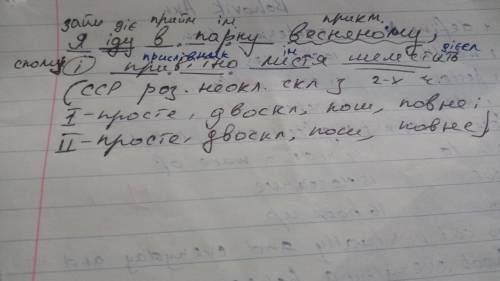 займ діє прийм ім прикм.
Я іду в парку весняному,
спол прислівник ім дієсл
і привітно листя шелестить
2-х
(ССР роз. неокл. скл з
I - просте, двоскл, пош, повне;
II - просте, двоскл, пош, повне)